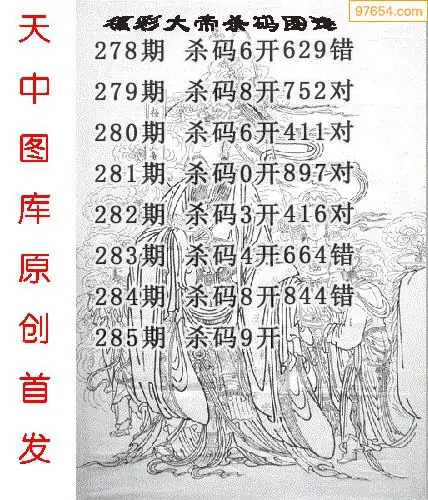 97654.com
福彩大帝杀码图迷
278期 杀码6开629错
279期 杀码8开752对
280期 杀码6开411对
281期 杀码0开897对
282期 杀码3开416对
283期 杀码4开664错
284期 杀码8开844错
285期 杀码9开
天中图库原创首发